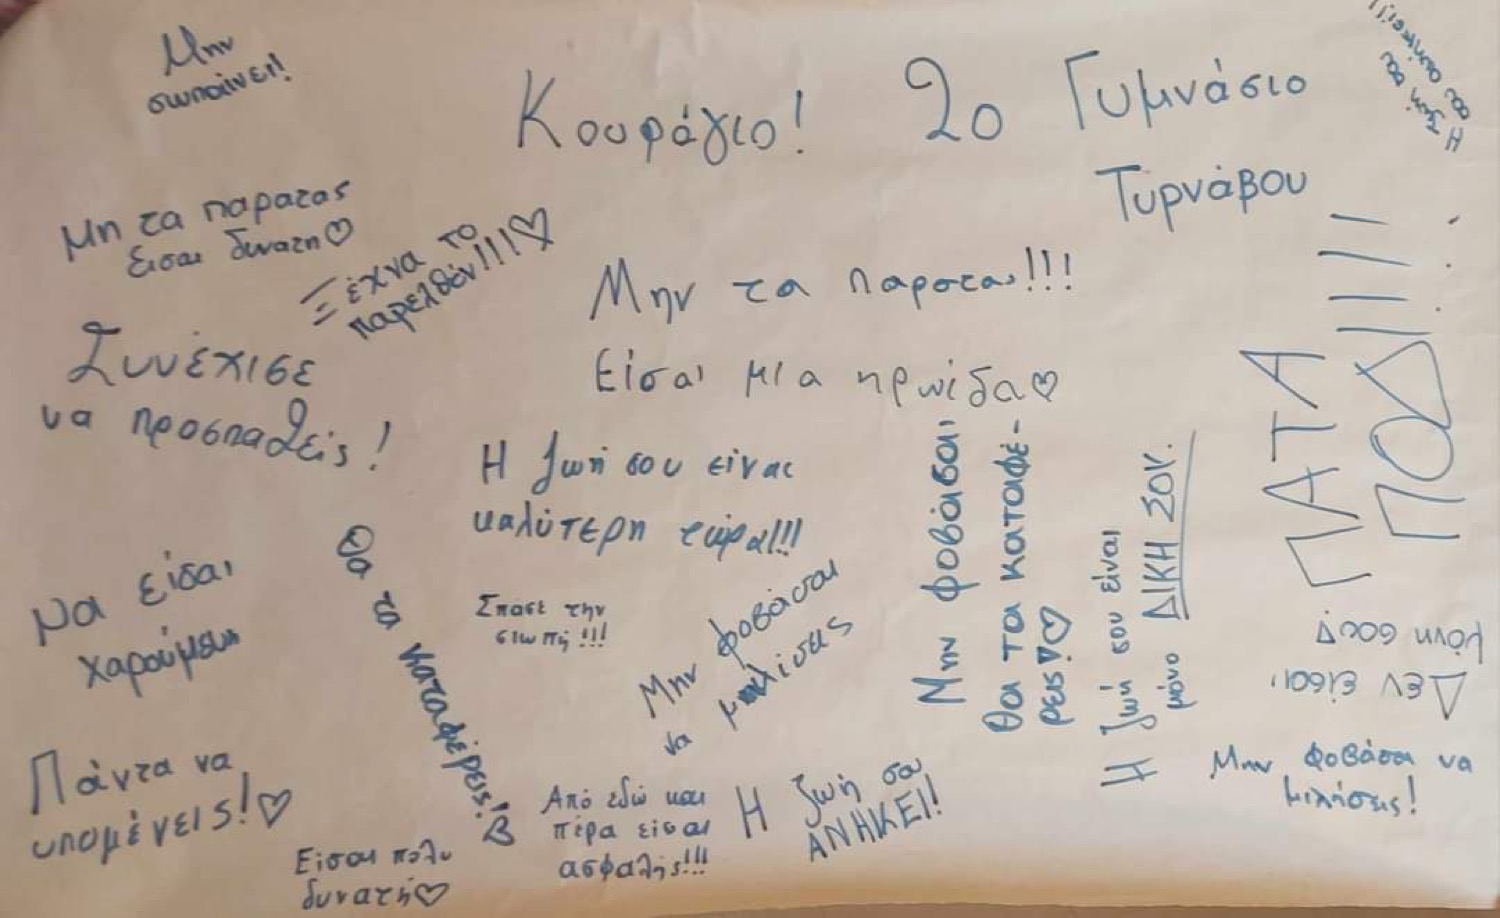 Μην
σωπαίνει!
Κουράγιο!
2ο Γυμνάσιο
Τυρνάβου
Η ζωή σου
σου ανήκει!!!
Μη τα παρατας
Εισαι δυνατη♡
Ξέχνα το
παρελθέν!!!♡
Συνέχισε
να προσπαθείς!
Μην τα παρατας!!!
Είσαι μια ηρωίδα♡
Η ζωή σου είναι
καλύτερη τώρα!!!
Να είσαι
χαρούμενη
Θα τα καταφέρεις!♡
Σπάσε την
σιωπή!!!
Μην φοβάσαι
να μιλίσεις
Μην φοβάσαι,
θα τα καταφέ-
ρεις!♡
Η ζωή σου είναι
μόνο ΔΙΚΗ ΣΟΥ.
ΠΑΤΑ
ΠΟΔΙ!!!!
ΔΕΝ είσαι
μόνη σου!
Μην φοβάσαι να
μιλήσεις!
Πάντα να
υπομένεις!♡
Είσαι πολυ
δυνατή♡
Από εδώ και
πέρα είσαι
ασφαλής!!!
Η ζωή σου
ΑΝΗΚΕΙ!